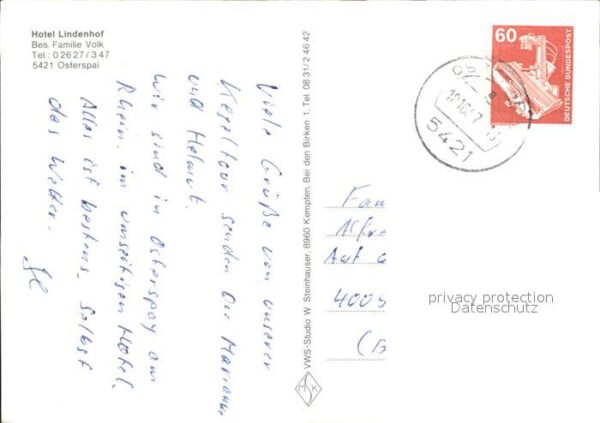 Hotel Lindenhof
Bes. Familie Volk
Tel.: 0 26 27 / 3 47
5421 Osterspai
Viele Grüße von unserer
Kegeltour senden Dir Marianne
und Helmut.
Wir sind in Osterspay am
Rhein im umseitigen Hotel.
Alles ist bestens, selbst
das Wetter.
VWS-Studio W. Steinhauser, 8960 Kempten, Bei den Birken 1, Tel. 08 31/2 46 42
60
DEUTSCHE BUNDESPOST
5421
Fam
Auf
4005
privacy protection
Datenschutz